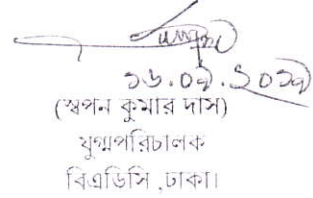 ১৬.০৭.২০১৭
(স্বপন কুমার দাস)
যুগ্মপরিচালক
বিএডিসি ,ঢাকা।